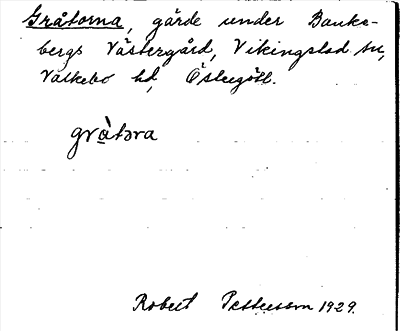 Gråtorna, gärde under Banke-
bergs Västergård, Vikingstad sn,
Valkebo hd, Östergötl.
gràtɔra
Robert Pettersson 1929.